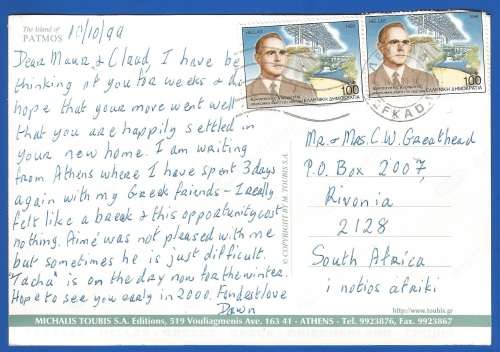 The Island of
PATMOS
10/10/99
Dear Maur & Claud, I have be
thinking of you for weeks & do
hope that your move went well
that you are happily settled in
your new home. I am waiting
from Athens where I have spent 3 days
again with my Greek friends - I really
felt like a break & this opportunity cost
nothing. Aimé was not pleased with me
but sometimes he is just difficult.
"Tacha" is on the day now for the winter.
Hope to see you early in 2000. Fondest love
Dawn
HELLAS
100
ΕΛΛΗΝΙΚΗ ΔΗΜΟΚΡΑΤΙΑ
HELLAS
100
ΕΛΛΗΝΙΚΗ ΔΗΜΟΚΡΑΤΙΑ
EFKAD
Mr. & Mrs. C.W. Greathead
P.O. Box 2007,
Rivonia
2128
South Africa
i notios afriki
© COPYRIGHT BY M. TOUBIS S.A.
http://www.toubis.gr
MICHALIS TOUBIS S.A. Editions, 519 Vouliagmenis Ave. 163 41 - ATHENS - Tel. 9923876, Fax. 9923867